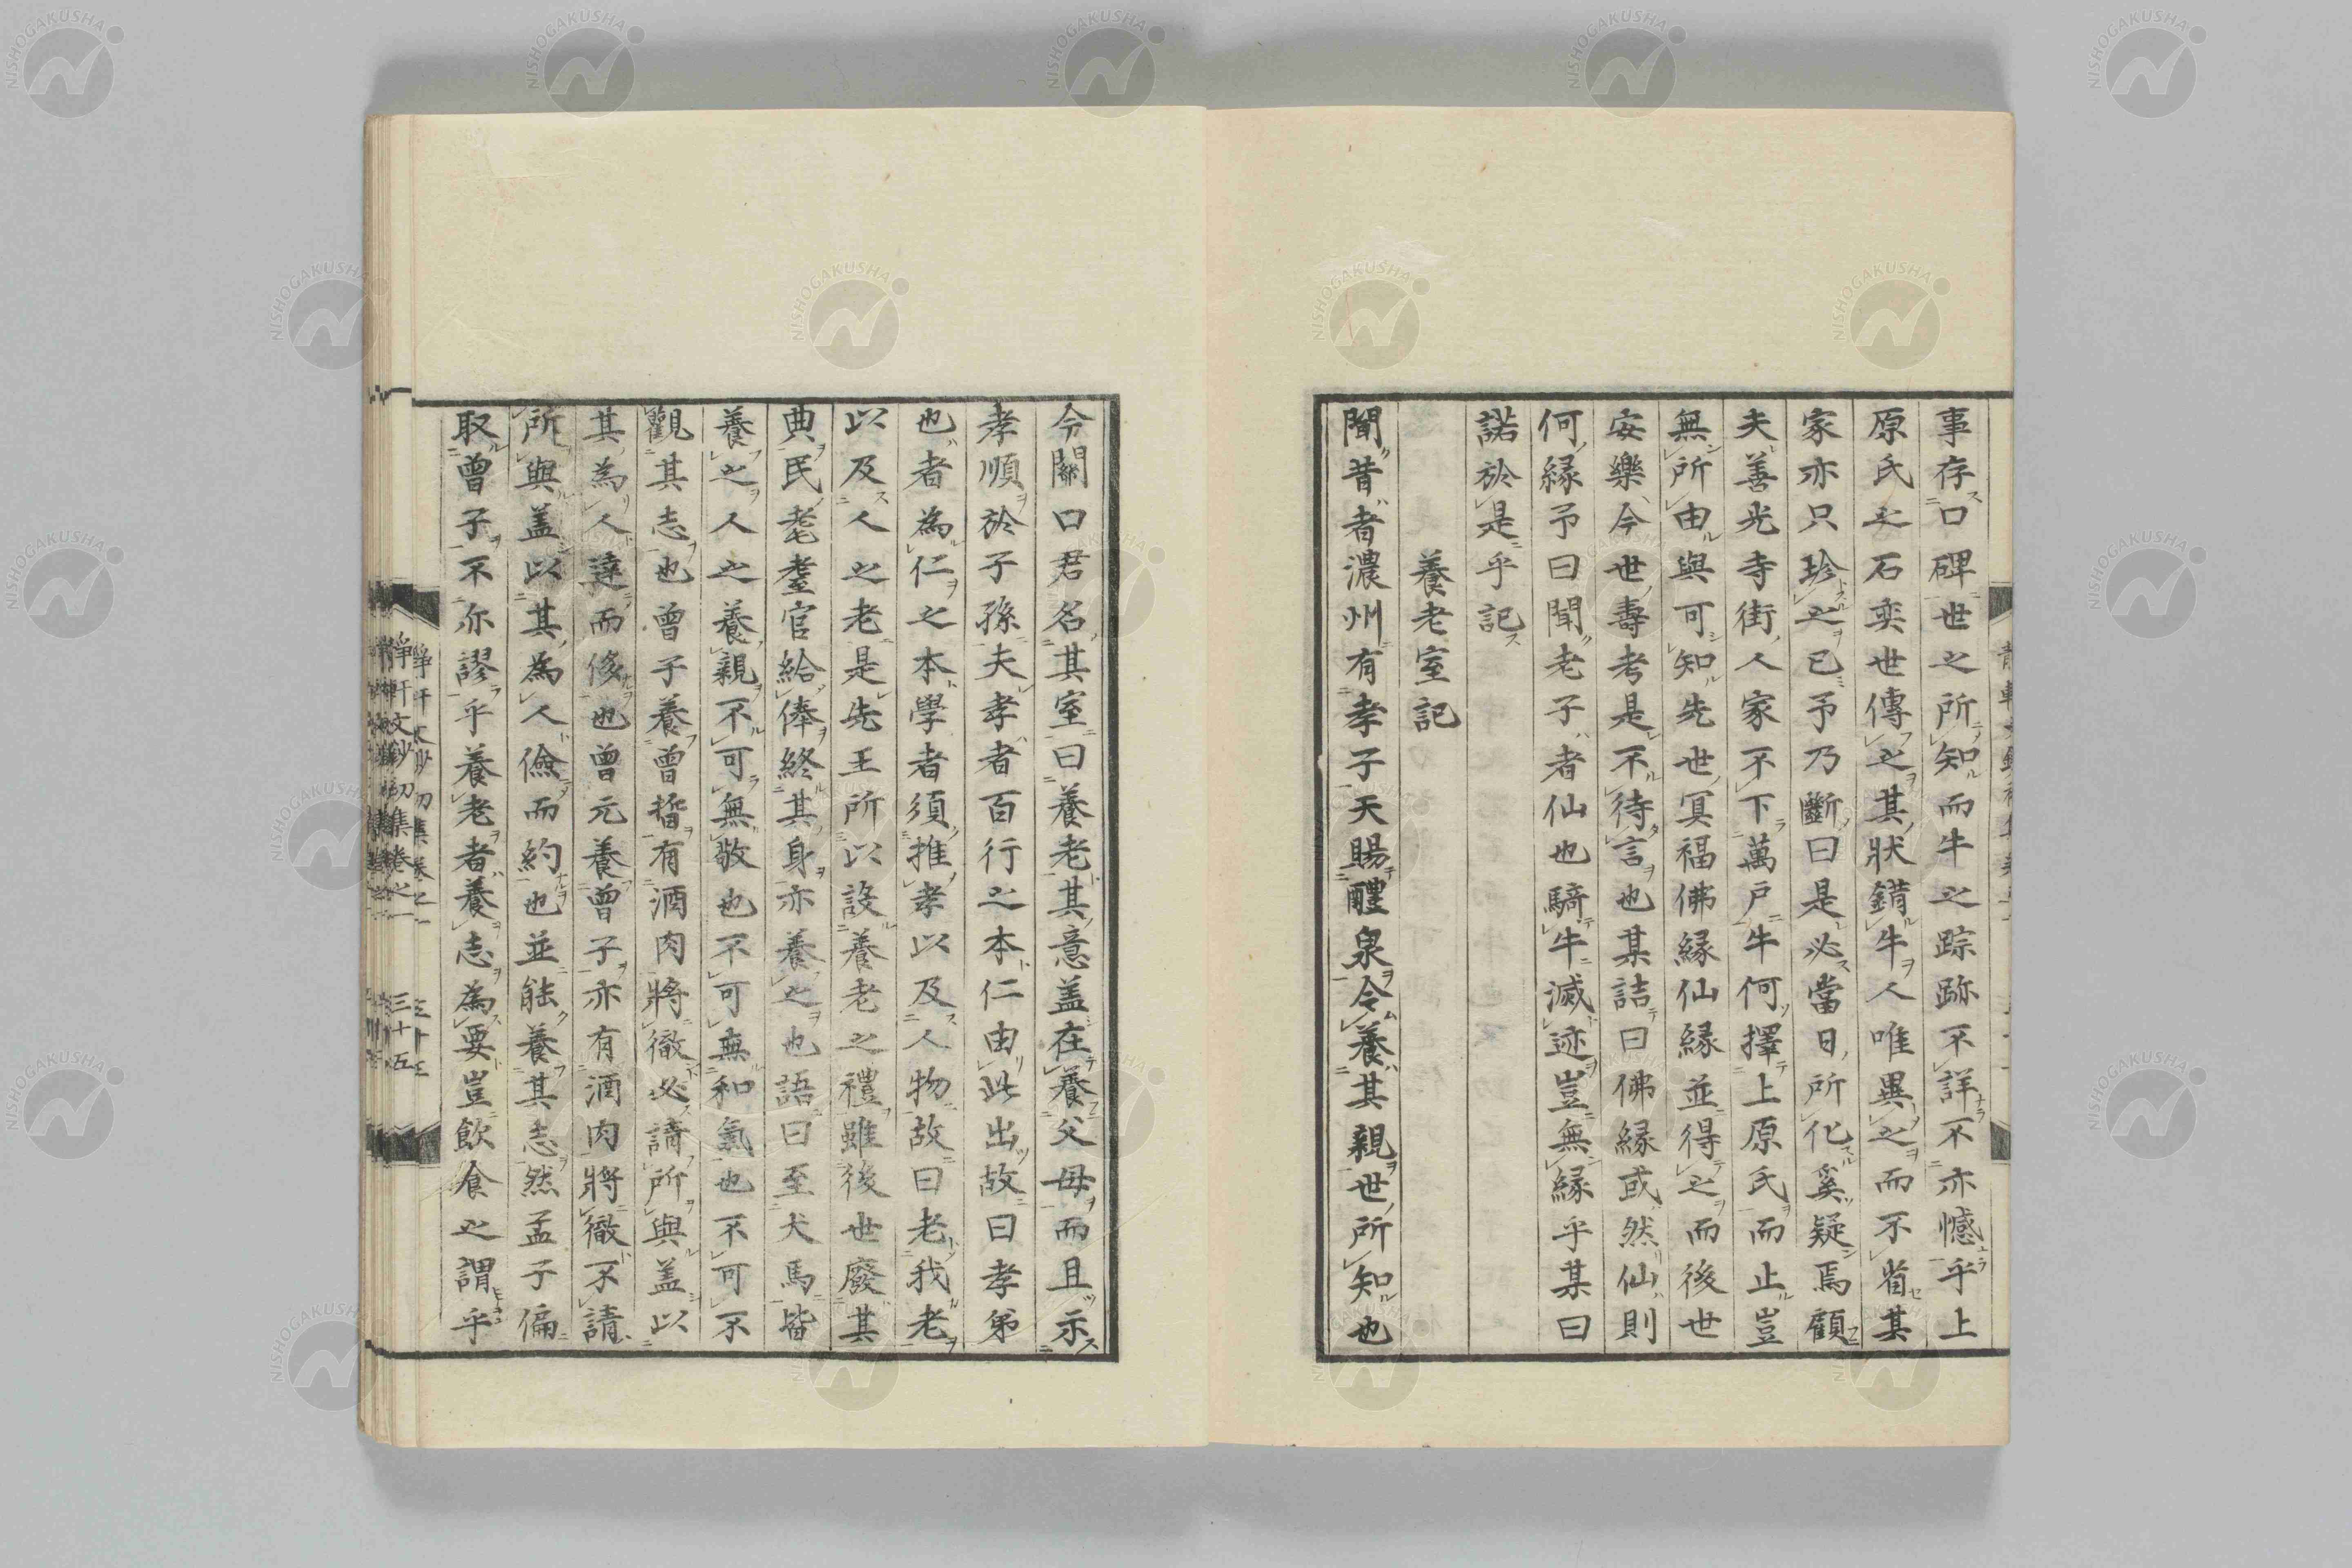 事存口碑世之所知而牛之踪跡不詳不亦憾乎上
原氏之石奕世傳之其狀錯牛人唯異之而不省其
家亦只珍之已予乃斷曰是必當日所化奚疑焉顧
夫善光寺街人家不下萬戸牛何擇上原氏而止豈
無所由與可知先世冥福佛縁仙縁並得之而後世
安樂今世壽考是不待言也某詰曰佛縁或然仙則
何縁予曰聞老子者仙也騎牛滅迹豈無縁乎某曰
諾於是乎記
養老室記
聞昔者濃州有孝子天賜醴泉令養其親世所知也
今關口君名其室曰養老其意盖在養父母而且示
孝順於子孫夫孝者百行之本仁由此出故曰孝弟
也者為仁之本學者須推孝以及人物故曰老我老
以及人之老是先王所以設養老之禮雖後世廢其
典民耄耋官給俸終其身亦養之也語曰至犬馬皆
養之人之養親不可無敬也不可無和氣也不可不
觀其志也曾子養曾晳有酒肉將徹必請所與盖以
其為人達而侈也曾元養曾子亦有酒肉將徹不請
所與盖以其為人儉而約也並能養其志然孟子偏
取曾子不亦謬乎養老者養志為要豈飲食之謂乎
靜軒文鈔初集卷之一
三十五
NISHOGAKUSHA